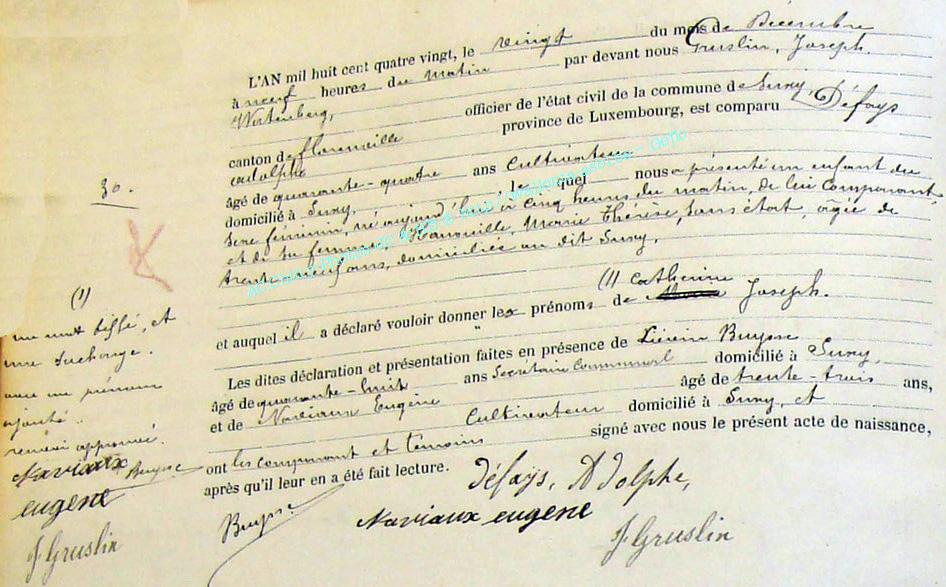 L'AN mil huit cent quatre vingt, le vingt du mois de Décembre
à neuf heures du matin par devant nous Gruslin, Joseph
officier de l'état civil de la commune de Suxy,
canton de Florenville province de Luxembourg, est comparu Défays
adolphe
âgé de quarante-quatre ans Cultivateur
domicilié à Suxy, le quel nous a présenté un enfant du
sexe féminin, né aujourd'hui à cinq heures, du matin, de lui comparant,
et de sa femme, Marie Thérèse, sans état, âgée de
trente neuf ans, domiciliée au dit Suxy,
30.
(1) Catherine
et auquel il a déclaré vouloir donner les prénoms de Joseph.
Les dites déclaration et présentation faites en présence de Buysse
âgé de quarante-huit ans Secrétaire Communal domicilié à Suxy,
et de Naviaux Eugène âgé de trente-trois ans,
Cultivateur domicilié à Suxy, et
ont les comparant et témoins signé avec nous le présent acte de naissance,
après qu'il leur en a été fait lecture.
Défays, Adolphe,
Buysse
Naviaux eugene
J Gruslin
(1)
un mot biffé, et
une surcharge.
avec un prénom
ajouté.
approuvé.
Naviaux Buysse
eugene
J Gruslin